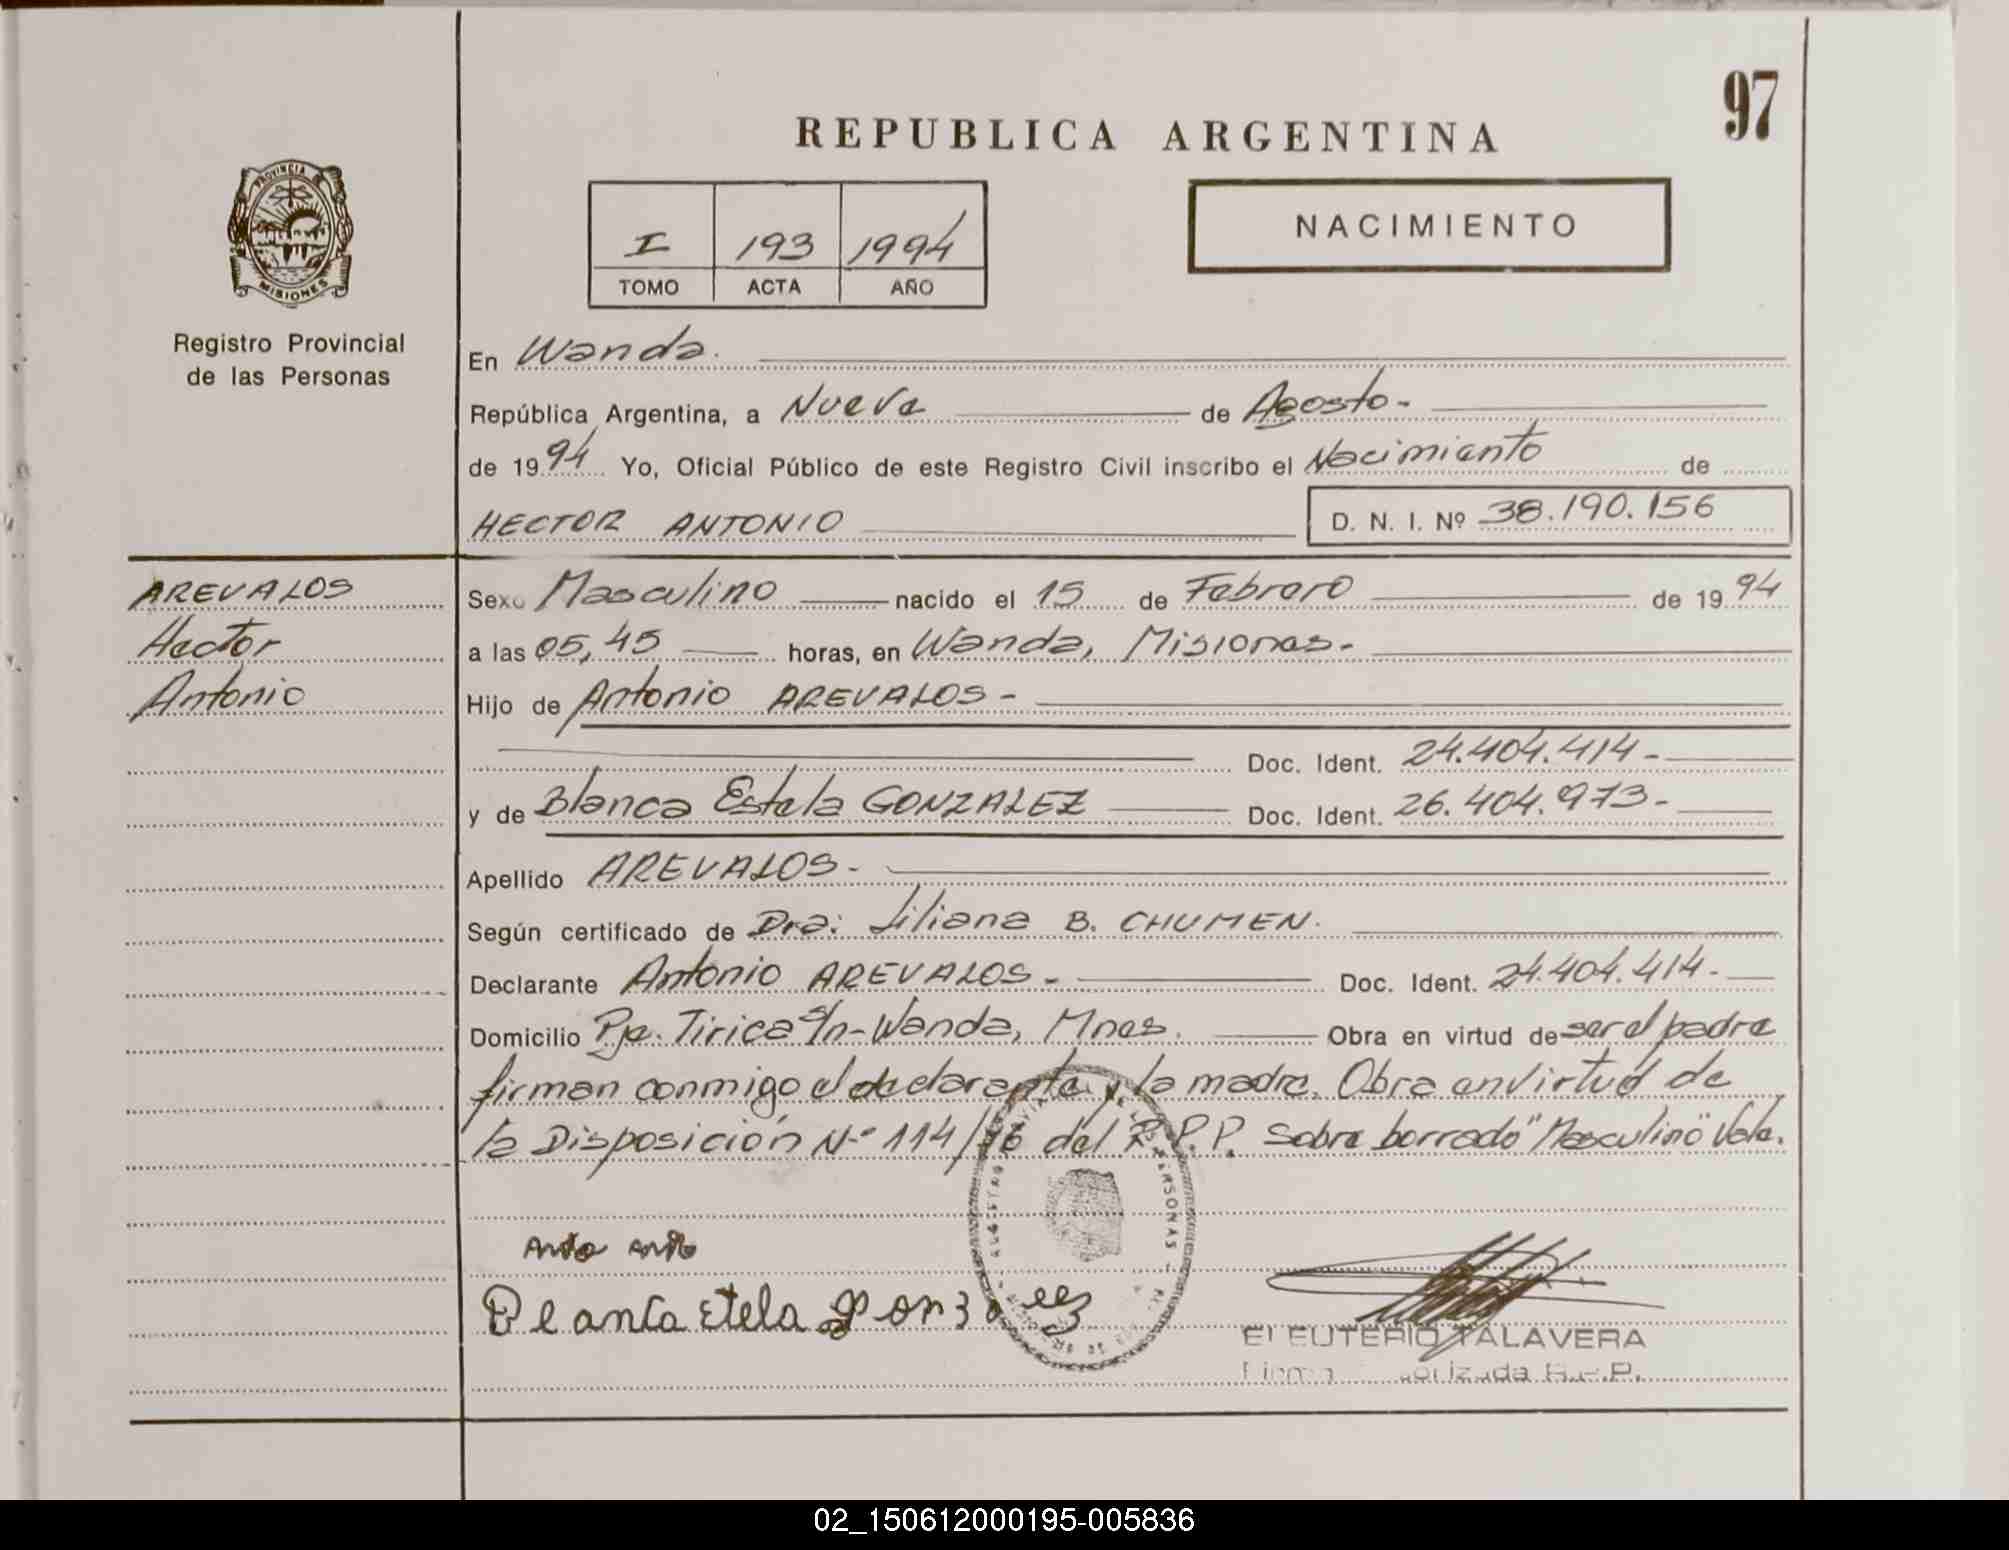 97
REPUBLICA ARGENTINA
I 193 1994
TOMO ACTA AÑO
NACIMIENTO
PROVINCIA DE
MISIONES
Registro Provincial
de las Personas
En Wanda.
República Argentina, a Nueve de Agosto-
de 1994 Yo, Oficial Público de este Registro Civil inscribo el Nacimiento de
HECTOR ANTONIO D. N. I. Nº 38.190.156
AREVALOS
Hector
Antonio
Sexo Masculino nacido el 15 de Febrero de 1994
a las 05,45 horas, en Wanda, Misiones-
Hijo de Antonio AREVALOS-
Doc. Ident. 24.404.414-
y de Blanca Estela GONZALEZ Doc. Ident. 26.404.973-
Apellido AREVALOS-
Según certificado de Dra: Liliana B. CHUMEN.
Declarante Antonio AREVALOS- Doc. Ident. 24.404.414-
Domicilio Pje. Tirica S/n-Wanda, Mnes. Obra en virtud de ser el padre
firman conmigo el declarante y la madre. Obra en virtud de
la Disposición N-º 114/76 del R.P.P. Sobre borrado "Masculino" Vale.
Blanca Etela gonzalez
ELEUTERIO TALAVERA
Firma Autorizada R.P.P.
02_150612000195-005836